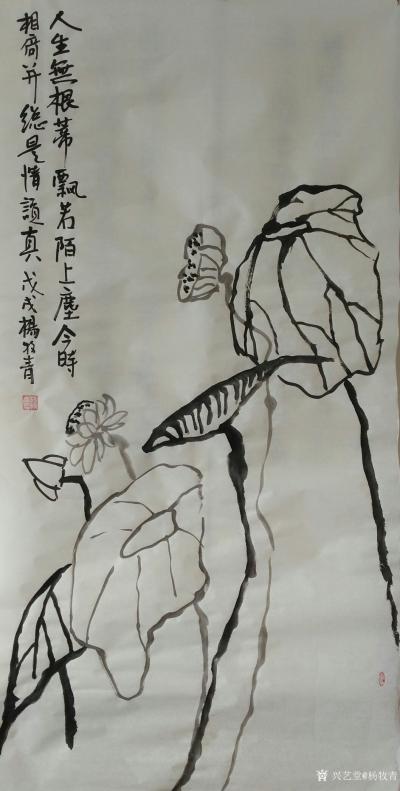 人生無根蒂飄若陌上塵今時
相倚并總是情誼真戊戌楊牧青
兴艺堂@杨牧青